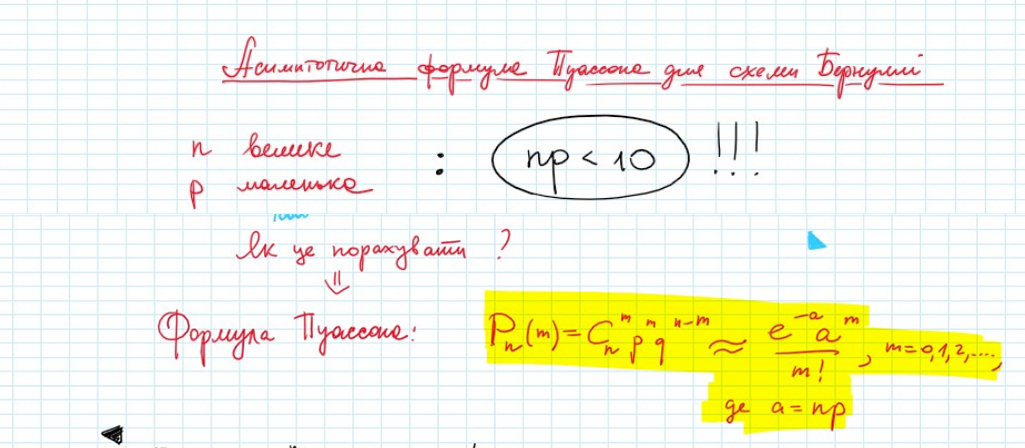 Асимптотична формула Пуассона для схеми Бернуллі
n велике : np < 10 !!!
p маленька
Як це порахувати ?
⇓
Формула Пуассона: Pₙ(m) = Cₙᵐ pᵐ qⁿ⁻ᵐ ≈ e⁻ᵃ aᵐ / m! , m = 0,1,2,...,
де a = np